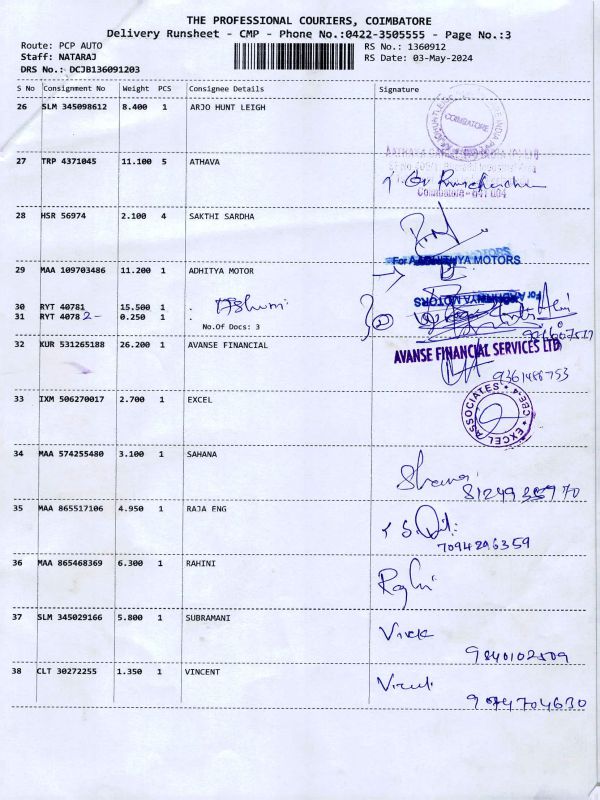 THE PROFESSIONAL COURIERS, COIMBATORE
Delivery Runsheet - CMP - Phone No.:0422-3505555 - Page No.:3
Route: PCP AUTO RS No.: 1360912
Staff: NATARAJ RS Date: 03-May-2024
DRS No.: DCJB136091203
S No Consignment No Weight PCS Consignee Details Signature
26 SLM 345098612 8.400 1 ARJO HUNT LEIGH
COIMBATORE
27 TRP 4371045 11.100 5 ATHAVA
Coimbatore - 641 004
28 HSR 56974 2.100 4 SAKTHI SARDHA
For AADHITHYA MOTORS
29 MAA 109703486 11.200 1 ADHITYA MOTOR
For AADHITHYA MOTORS
30 RYT 40781 15.500 1 .
31 RYT 4078 2- 0.250 1 .
No.Of Docs: 3
32 KUR 531265188 26.200 1 AVANSE FINANCIAL
AVANSE FINANCIAL SERVICES LTD
9361488753
33 IXM 506270017 2.700 1 EXCEL
EXCEL ASSOCIATES * CBE-4 *
34 MAA 574255480 3.100 1 SAHANA
35 MAA 865517106 4.950 1 RAJA ENG
7094296359
36 MAA 865468369 6.300 1 RAHINI
37 SLM 345029166 5.800 1 SUBRAMANI
Vivek
9840102509
38 CLT 30272255 1.350 1 VINCENT